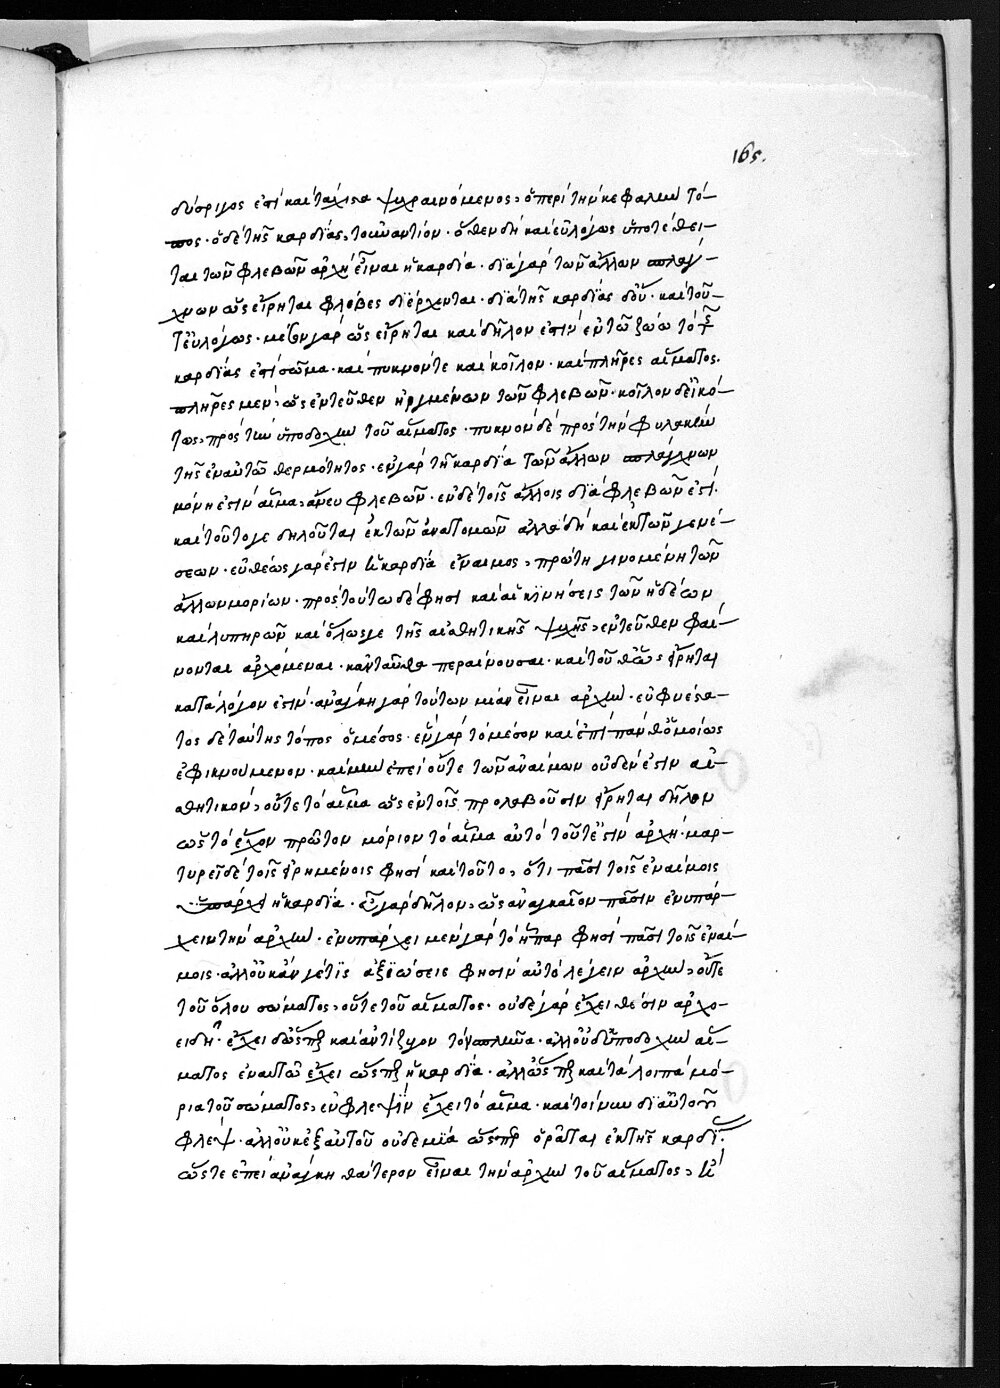 165.
δύσριγος ἐστὶ καὶ τάχιστα ψυχραινόμενος, ὁ περὶ τὴν κεφαλὴν τό-
πος· ὁ δὲ τῆς καρδίας, τοὐναντίον· ὅθεν δὴ καὶ εὐλόγως ὑποτέθει-
ται τῶν φλεβῶν ἀρχὴ εἶναι ἡ καρδία· διὰ γὰρ τῶν ἄλλων σπλάγ-
χνων ὡς εἴρηται φλέβες διέρχονται· διὰ τῆς καρδίας δ' οὔ· καὶ τοῦ-
τ' εὐλόγως· μεῖζον γὰρ ὡς εἴρηται καὶ δῆλον ἐστὶν ἐν τῶ ζώω τὸ τῆς
καρδίας ἐστὶ σῶμα· καὶ πυκνόν τε καὶ κοῖλον· καὶ πλῆρες αἵματος·
πλῆρες μὲν, ὡς ἐντεῦθεν ἠργμένων τῶν φλεβῶν· κοῖλον δ' εἰκό-
τως, πρὸς τὴν ὑποδοχὴν τοῦ αἵματος· πυκνὸν δὲ πρὸς τὴν φυλακὴν
τῆς ἐν αὐτῶ θερμότητος· ἐν γὰρ τῆ καρδία τῶν ἄλλων σπλάγχνων
μόνη ἐστὶν αἷμα, ἄνευ φλεβῶν· ἐν δὲ τοῖς ἄλλοις διὰ φλεβῶν ἐστι·
καὶ τοῦτό γε δηλοῦται ἐκ τῶν ἀνατομῶν ἀλλὰ δὴ καὶ ἐκ τῶν γενέ-
σεων· εὐθέως γάρ ἐστιν ἡ καρδία ἔναιμος, πρώτη γινομένη τῶν
ἄλλων μορίων· πρὸς τούτω δέ φησι καὶ αἱ κινήσεις τῶν ἡδέων
καὶ λυπηρῶν καὶ ὅλως γε τῆς αἰσθητικῆς ψυχῆς, ἐντεῦθεν φαί-
νονται ἀρχόμεναι· κἀνταῦθα περαίνουσαι· καὶ τοῦθ' ὡς εἴρηται
κατὰ λόγον ἐστίν· ἀνάγκη γὰρ τούτων μίαν εἶναι ἀρχήν· εὐφυέστα-
τος δὲ ταύτης τόπος ὁ μέσος· ἓν γὰρ τὸ μέσον καὶ ἐπὶ πᾶν θ' ὁμοίως
ἐφικνούμενον· καὶ μὴν ἐπεὶ οὔτε τῶν ἀναίμων οὐδέν ἐστιν αἰσ-
θητικόν, οὔτε τὸ αἷμα ὡς ἐν τοῖς προλαβοῦσιν εἴρηται δῆλον
ὡς τὸ ἔχον πρῶτον μόριον τὸ αἷμα αὐτὸ τοῦτ' ἐστὶν ἀρχή· μαρ-
τυρεῖ δὲ τοῖς εἰρημένοις φησὶ καὶ τοῦτο, ὅτι πᾶσι τοῖς ἐναίμοις
ὑπάρχει ἡ καρδία· ᾧ γὰρ δῆλον, ὡς ἀναγκαῖον πᾶσιν ἐνυπάρ-
χειν τὴν ἀρχήν· ἐνυπάρχει μὲν γὰρ τὸ ἧπαρ φησὶ πᾶσι τοῖς ἐναί-
μοις· ἀλλ' οὐκ ἄν γέ τις ἀξιώσειε φησὶν αὐτὸ λέγειν ἀρχὴν, οὔτε
τοῦ ὅλου σώματος, οὔτε τοῦ αἵματος· οὐδὲ γὰρ ἔχει θέσιν ἀρχο-
ειδῆ· ἔχει δ' ὥσπερ καὶ ἀντίζυγον τὸν σπλῆνα· ἀλλ' οὐδ' ὑποδοχὴν αἵ-
ματος ἐν αὐτῶ ἔχει ὥσπερ ἡ καρδία· ἀλλ' ὥσπερ καὶ τὰ λοιπὰ μό-
ρια τοῦ σώματος, ἐν φλεψὶν ἔχει τὸ αἷμα· καὶ τοίνυν δι' αὐτοῦ
φλεψ· ἀλλ' οὐκ ἐξ αὐτοῦ οὐδεμία ὥσπερ ὁρᾶται ἐκ τῆς καρδί·
ὥστε ἐπεὶ ἀνάγκη θάτερον εἶναι τὴν ἀρχὴν τοῦ αἵματος, ἢ